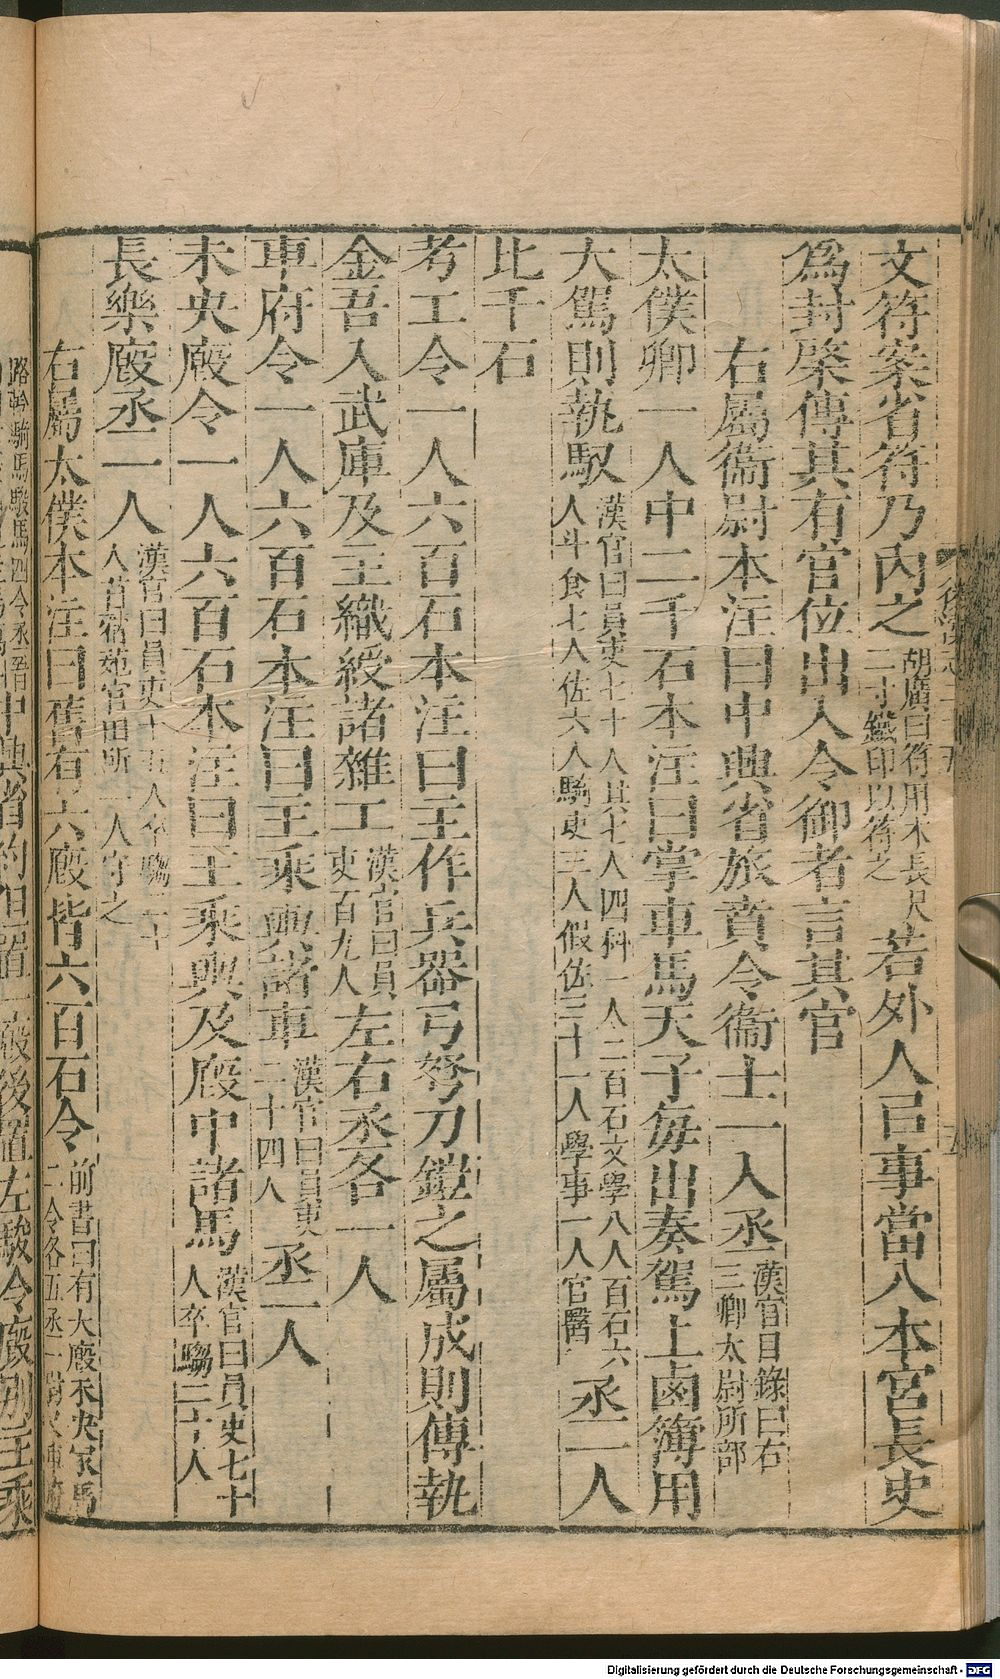 文符案省符乃內之胡廣曰符用木長尺二寸鐵印以符之若外人以事當入本宮長史
爲封棨傳其有官位出入令御者言其官
右屬衞尉本注曰中興省旅賁令衞士一人丞漢官目錄曰右三卿太尉所部
太僕卿一人中二千石本注曰掌車馬天子每出奏駕上鹵簿用
大駕則執馭漢官曰員吏七十人其七人四科一人二百石文學八人百石六人斗食七人佐六人騎吏三人假佐三十一人學事一人官醫丞一人
比千石
考工令一人六百石本注曰主作兵器弓弩刀鎧之屬成則傳執
金吾入武庫及主織綬諸雜工漢官曰員吏百九人左右丞各一人
車府令一人六百石本注曰主乘輿諸車漢官曰員吏二十四人丞一人
未央廄令一人六百石本注曰主乘輿及廄中諸馬漢官曰員吏七十人卒騶二十人
長樂廄丞一人漢官曰員吏十五人卒騶二十人苜蓿苑官田所一人守之
右屬太僕本注曰舊有六廄皆六百石令前書曰有大廄未央家馬三令各五丞一尉又車府
路軨騎馬駿馬四令丞晉中興省約但置一廄後置左駿令廄別主乘
Digitalisierung gefördert durch die Deutsche Forschungsgemeinschaft - DFG